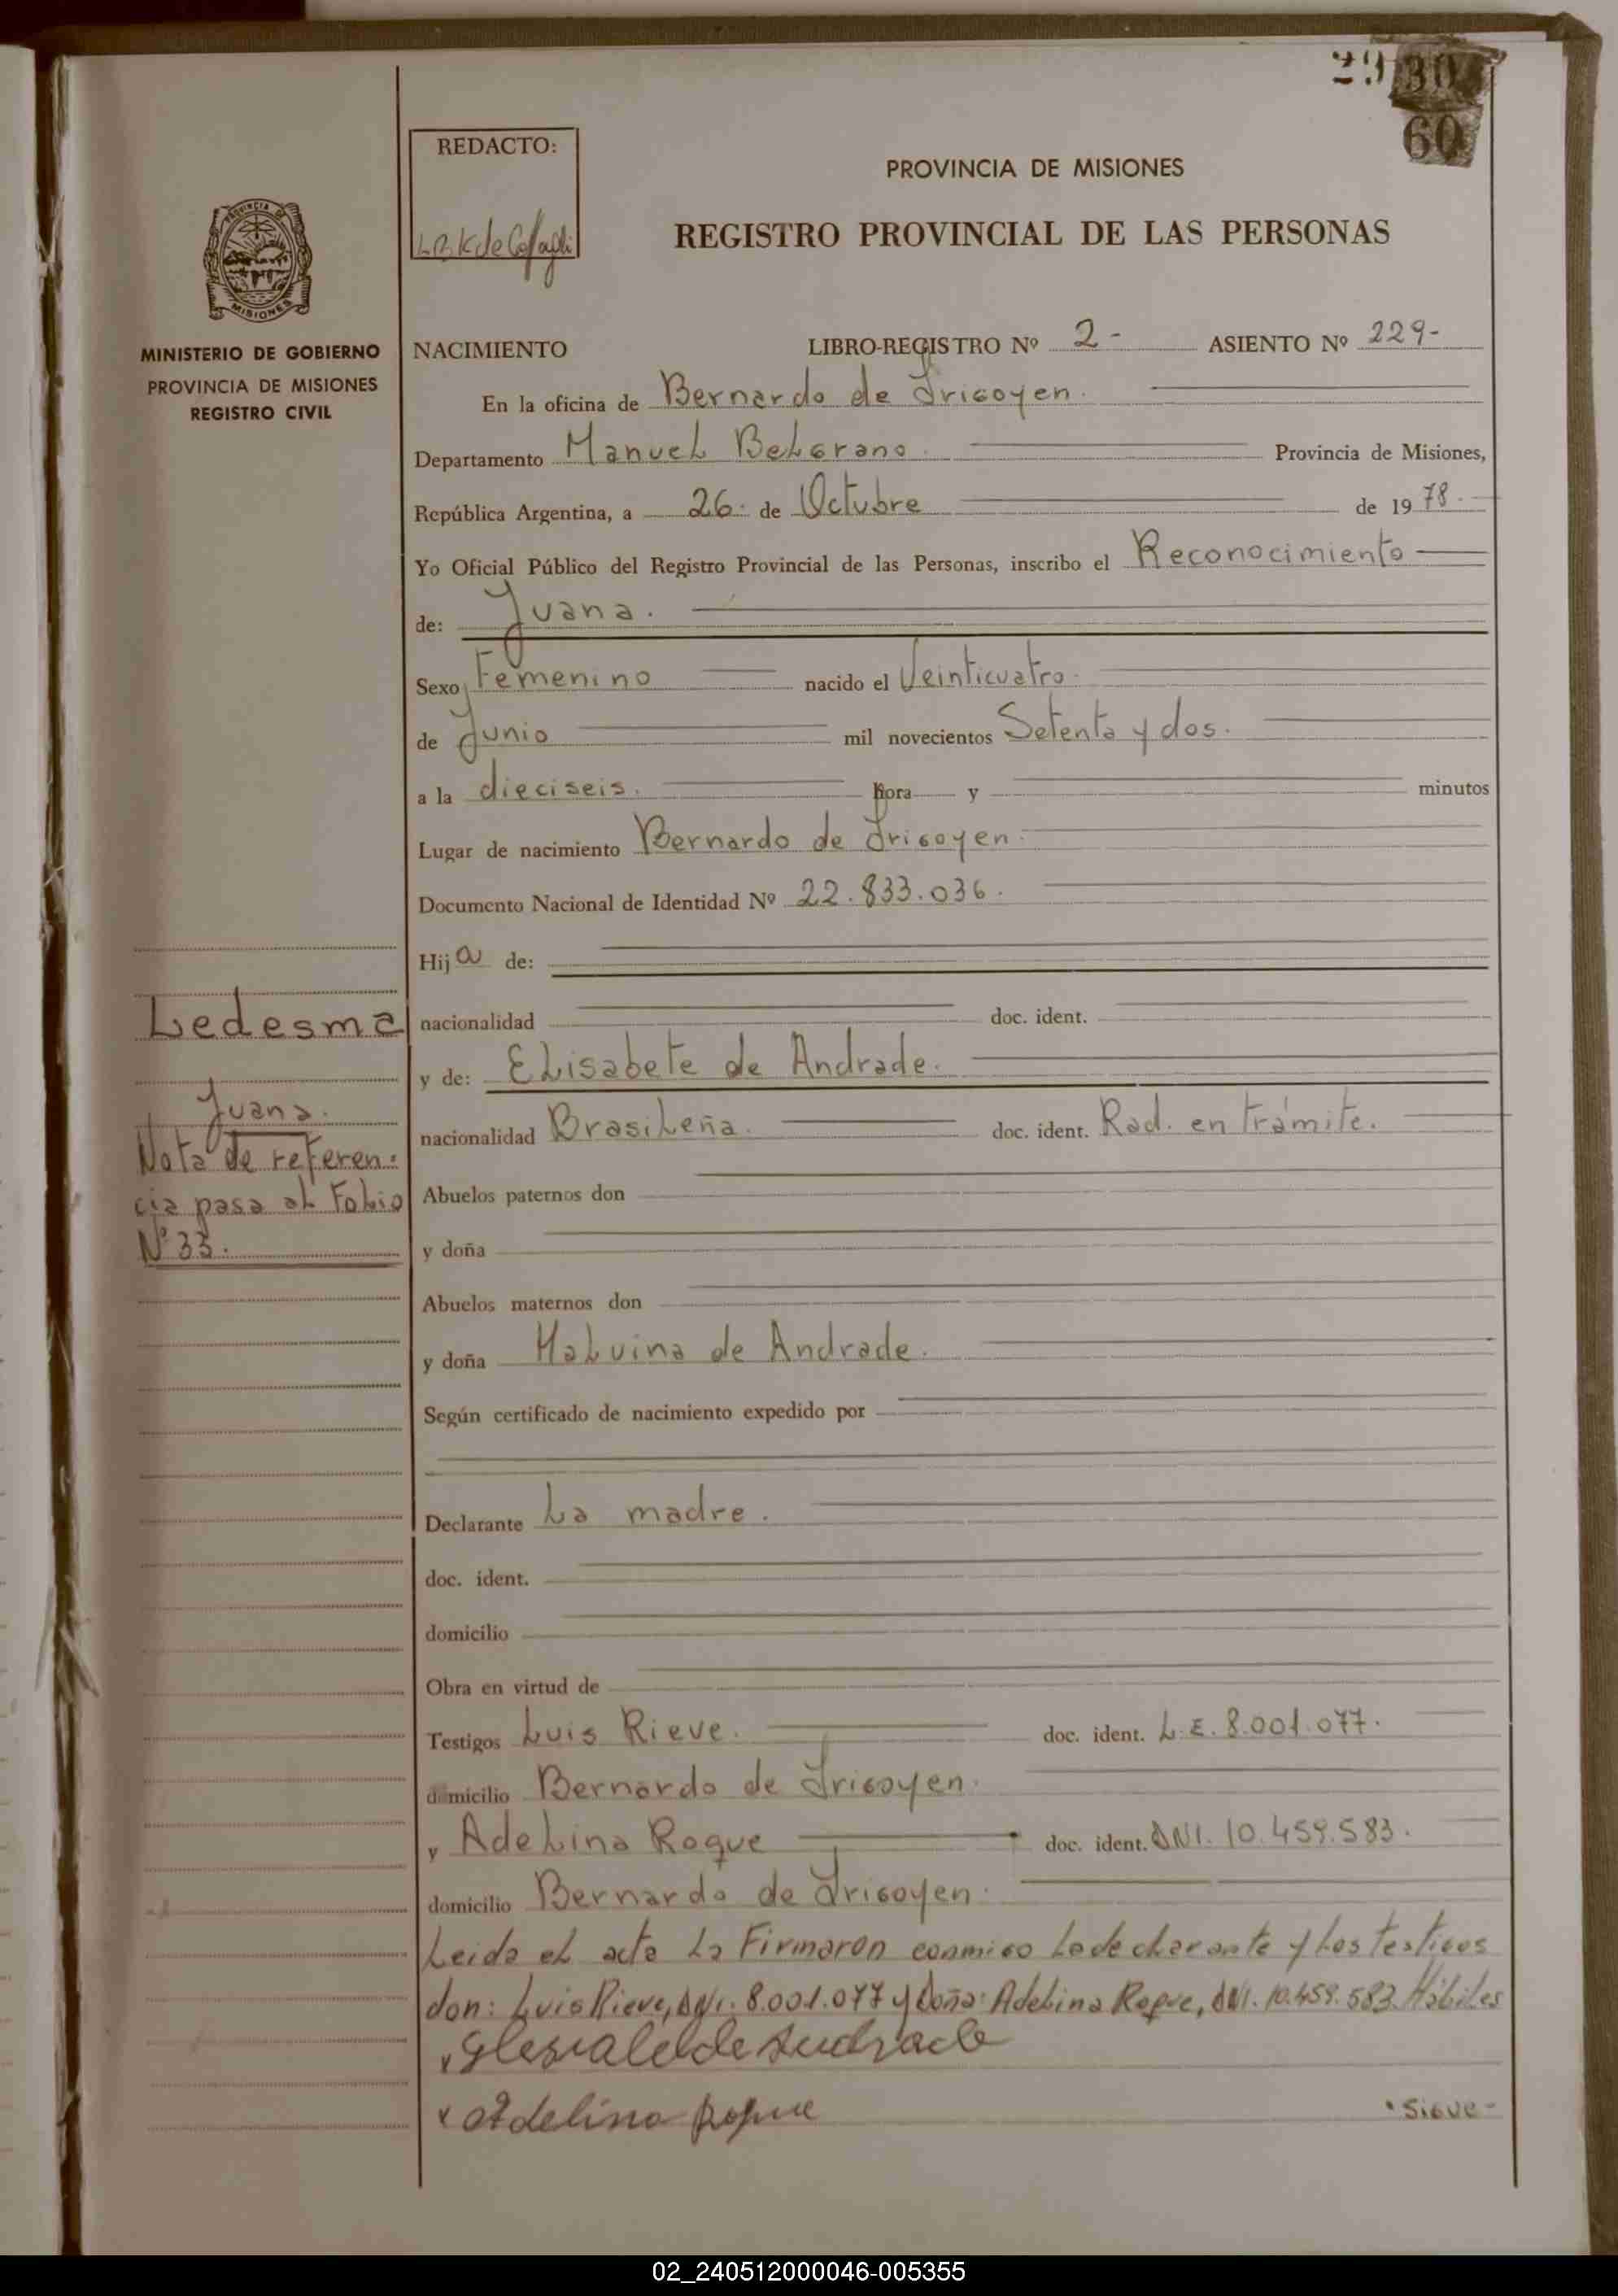 29 30
60
REDACTO:
PROVINCIA DE MISIONES
REGISTRO PROVINCIAL DE LAS PERSONAS
PROVINCIA DE
MISIONES
MINISTERIO DE GOBIERNO
PROVINCIA DE MISIONES
REGISTRO CIVIL
NACIMIENTO LIBRO-REGISTRO Nº 2 - ASIENTO Nº 229-
En la oficina de Bernardo de Irigoyen.
Departamento Manuel Belgrano. Provincia de Misiones,
República Argentina, a 26. de Octubre de 1978.
Yo Oficial Público del Registro Provincial de las Personas, inscribo el Reconocimiento
de: Juana.
Sexo Femenino nacido el Veinticuatro.
de Junio mil novecientos Setenta y dos.
a la dieciseis. hora y minutos
Lugar de nacimiento Bernardo de Irigoyen.
Documento Nacional de Identidad Nº 22.833.036.
Hija de:
nacionalidad doc. ident.
y de: Elisabete de Andrade.
nacionalidad Brasileña. doc. ident. Rad. en trámite.
Abuelos paternos don
y doña
Abuelos maternos don
y doña Malvina de Andrade.
Según certificado de nacimiento expedido por
Declarante La madre.
doc. ident.
domicilio
Obra en virtud de
Testigos Luis Rieve. doc. ident. L.E. 8.001.077.
domicilio Bernardo de Irigoyen.
y Adelina Roque doc. ident. DNI. 10.459.583.
domicilio Bernardo de Irigoyen.
Leida el acta La Firmaron conmigo La declarante y Los testigos
don: Luis Rieve, DNI. 8.001.077 y Doña: Adelina Roque, DNI. 10.459.583. Hábiles
de Andrade
x Adelina Roque
- Sigue -
Ledesma
Juana.
Nota de referen-
cia pasa al Folio
Nº 33.
02_240512000046-005355